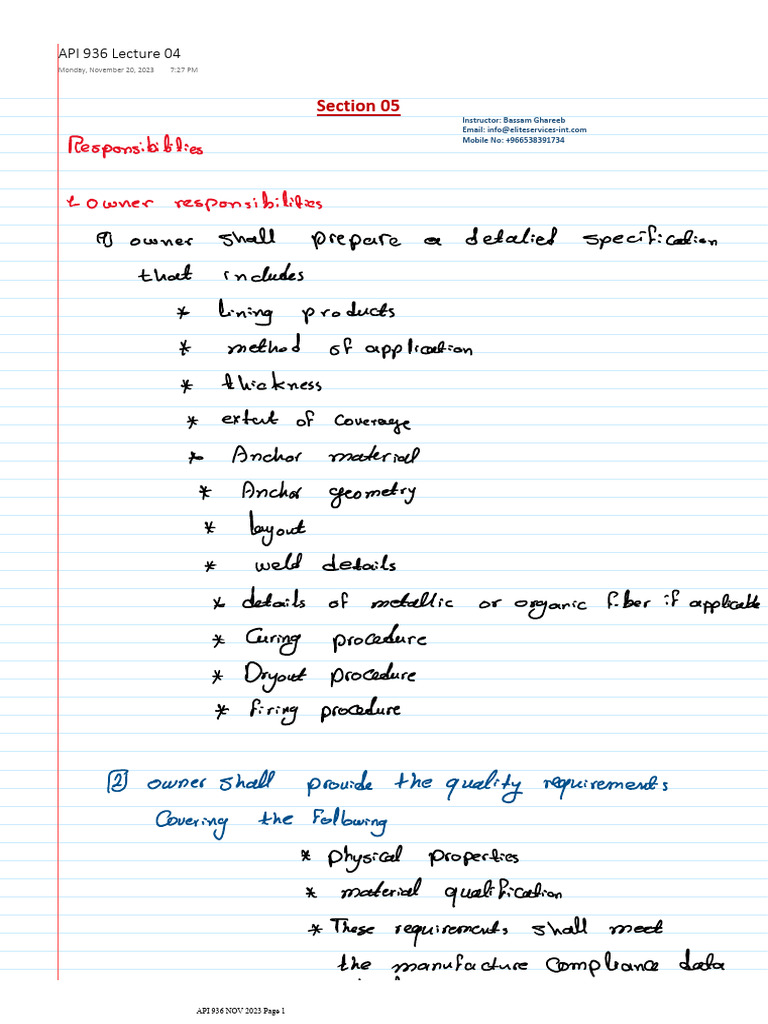 API 936 Lecture 04
Monday, November 20, 2023 7:27 PM
Section 05
Instructor: Bassam Ghareeb
Email: info@eliteservices-int.com
Mobile No: +966538391734
Responsibilties
owner responsibilities
1 owner shall prepare a detalied specification
that includes
* Lining products
* method of application
* thickness
* extent of coverage
* Anchor material
* Anchor geometry
* layout
* weld details
* details of metallic or organic fiber if applicable
* Curing procedure
* Dryout procedure
* firing procedure
2 owner shall provide the quality requirements
Covering the Following
* physical properties
* material qualification
* These requirements shall meet
the manufacture compliance data
API 936 NOV 2023 Page 1